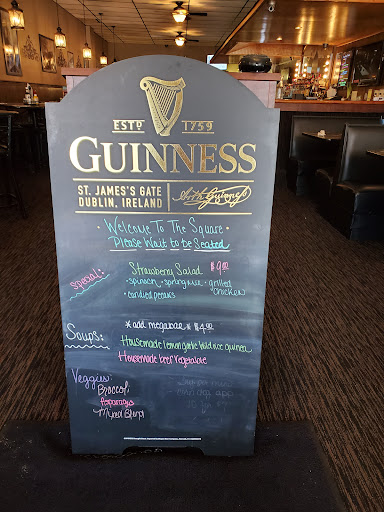 ESTD 1759
GUINNESS
ST. JAMES'S GATE
DUBLIN, IRELAND
• Welcome To The Square •
Please Wait to be Seated
Special:
Strawberry Salad $9.00
• spinach • spring mix • grilled chicken
• candied pecans
Soups:
* add $4.00
Housemade lemon garlic wild rice
Housemade beef vegetable
Veggies
Broccoli
Asparagus
Mixed
app